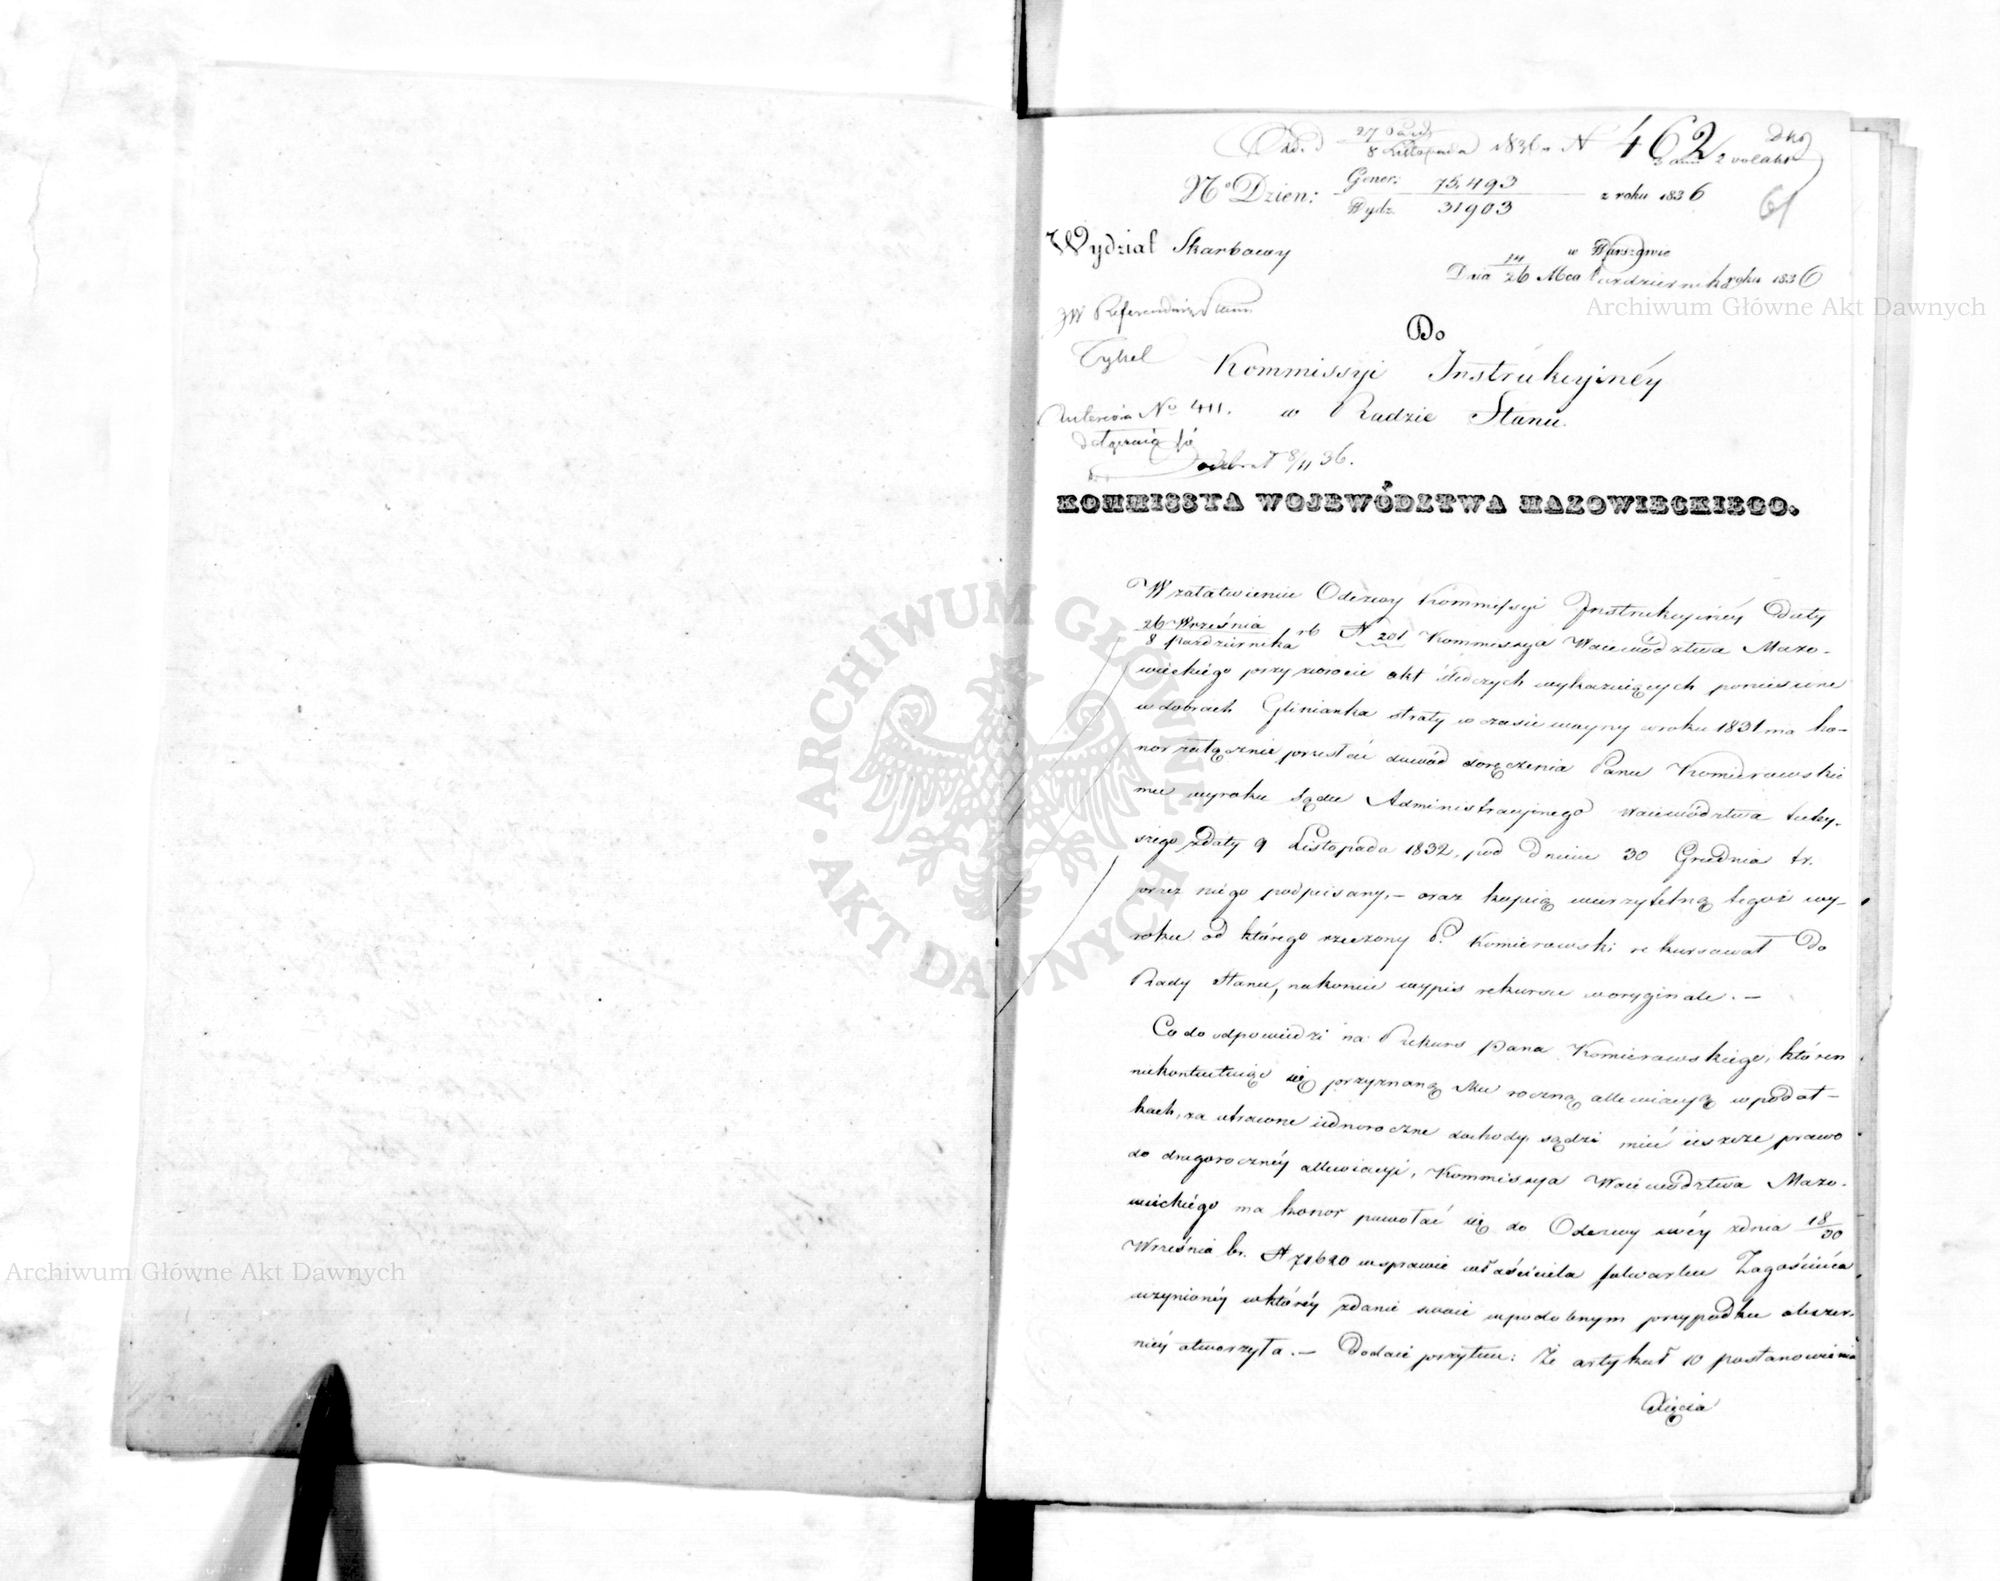 Odd. 27 Paźd. / 8 Listopada 1836 r. N 462
N° Dzien: Gener: 75,493 / Wydz. 31903 z roku 1836
61
Wydział Skarbowy
w Warszawie
Dnia 14/26 Mca Października roku 1836
JW Referendarz Stanu
Do
Kommissyi Instrukcyinéy
No 411. w Radzie Stanu.
odebrał 8/11 36.
KOMMISSYA WOJEWÓDZTWA MAZOWIECKIEGO.
W załatwieniu Odezwy Kommissyi Instrukcyinéy Daty
26 Września / 8 Października rb N 201 Kommissya Woiewództwa Mazo-
wieckiégo przy zwrocie akt śledczych wykazuiących poniesione
w dobrach Glinianka straty w czasie woyny w roku 1831 ma ho-
nor załącznie przesłać dowód doręczenia Panu Komierowskie
mu wyroku Sądu Administracyjnego Woiewództwa tutey-
szego z daty 9 Listopada 1832, pod dniem 30 Grudnia tr.
przez niégo podpisany, – oraz kopią wierzytelną tegoż wy-
roku od którego rzeczony P. Komierowski rekursował Do
Rady Stanu, nakoniec wypis rekursu w oryginale. –
Co do odpowiedzi na Rekurs Pana Komierowskiego, któren
niekontentuiąc się przyznaną Mu roczną allewiacyą w podat-
kach, za utracone iednoroczne dochody, sądzi mieć ieszcze prawo
do drugorocznéy allewiacyi, Kommissya Woiewództwa Mazo-
wieckiégo ma honor powołać się do Odezwy swéy z dnia 18/30
Września br. N 71620 w sprawie właściciela folwarku Zagościńca
uczynionéy w któréy zdanie swoie w podobnym przypadku obszer-
niéy otworzyła. – Dodaie przytem: Że artykuł 10 postanowienia
Xięcia
Archiwum Główne Akt Dawnych
Archiwum Główne Akt Dawnych
ARCHIWUM GŁÓWNE AKT DAWNYCH